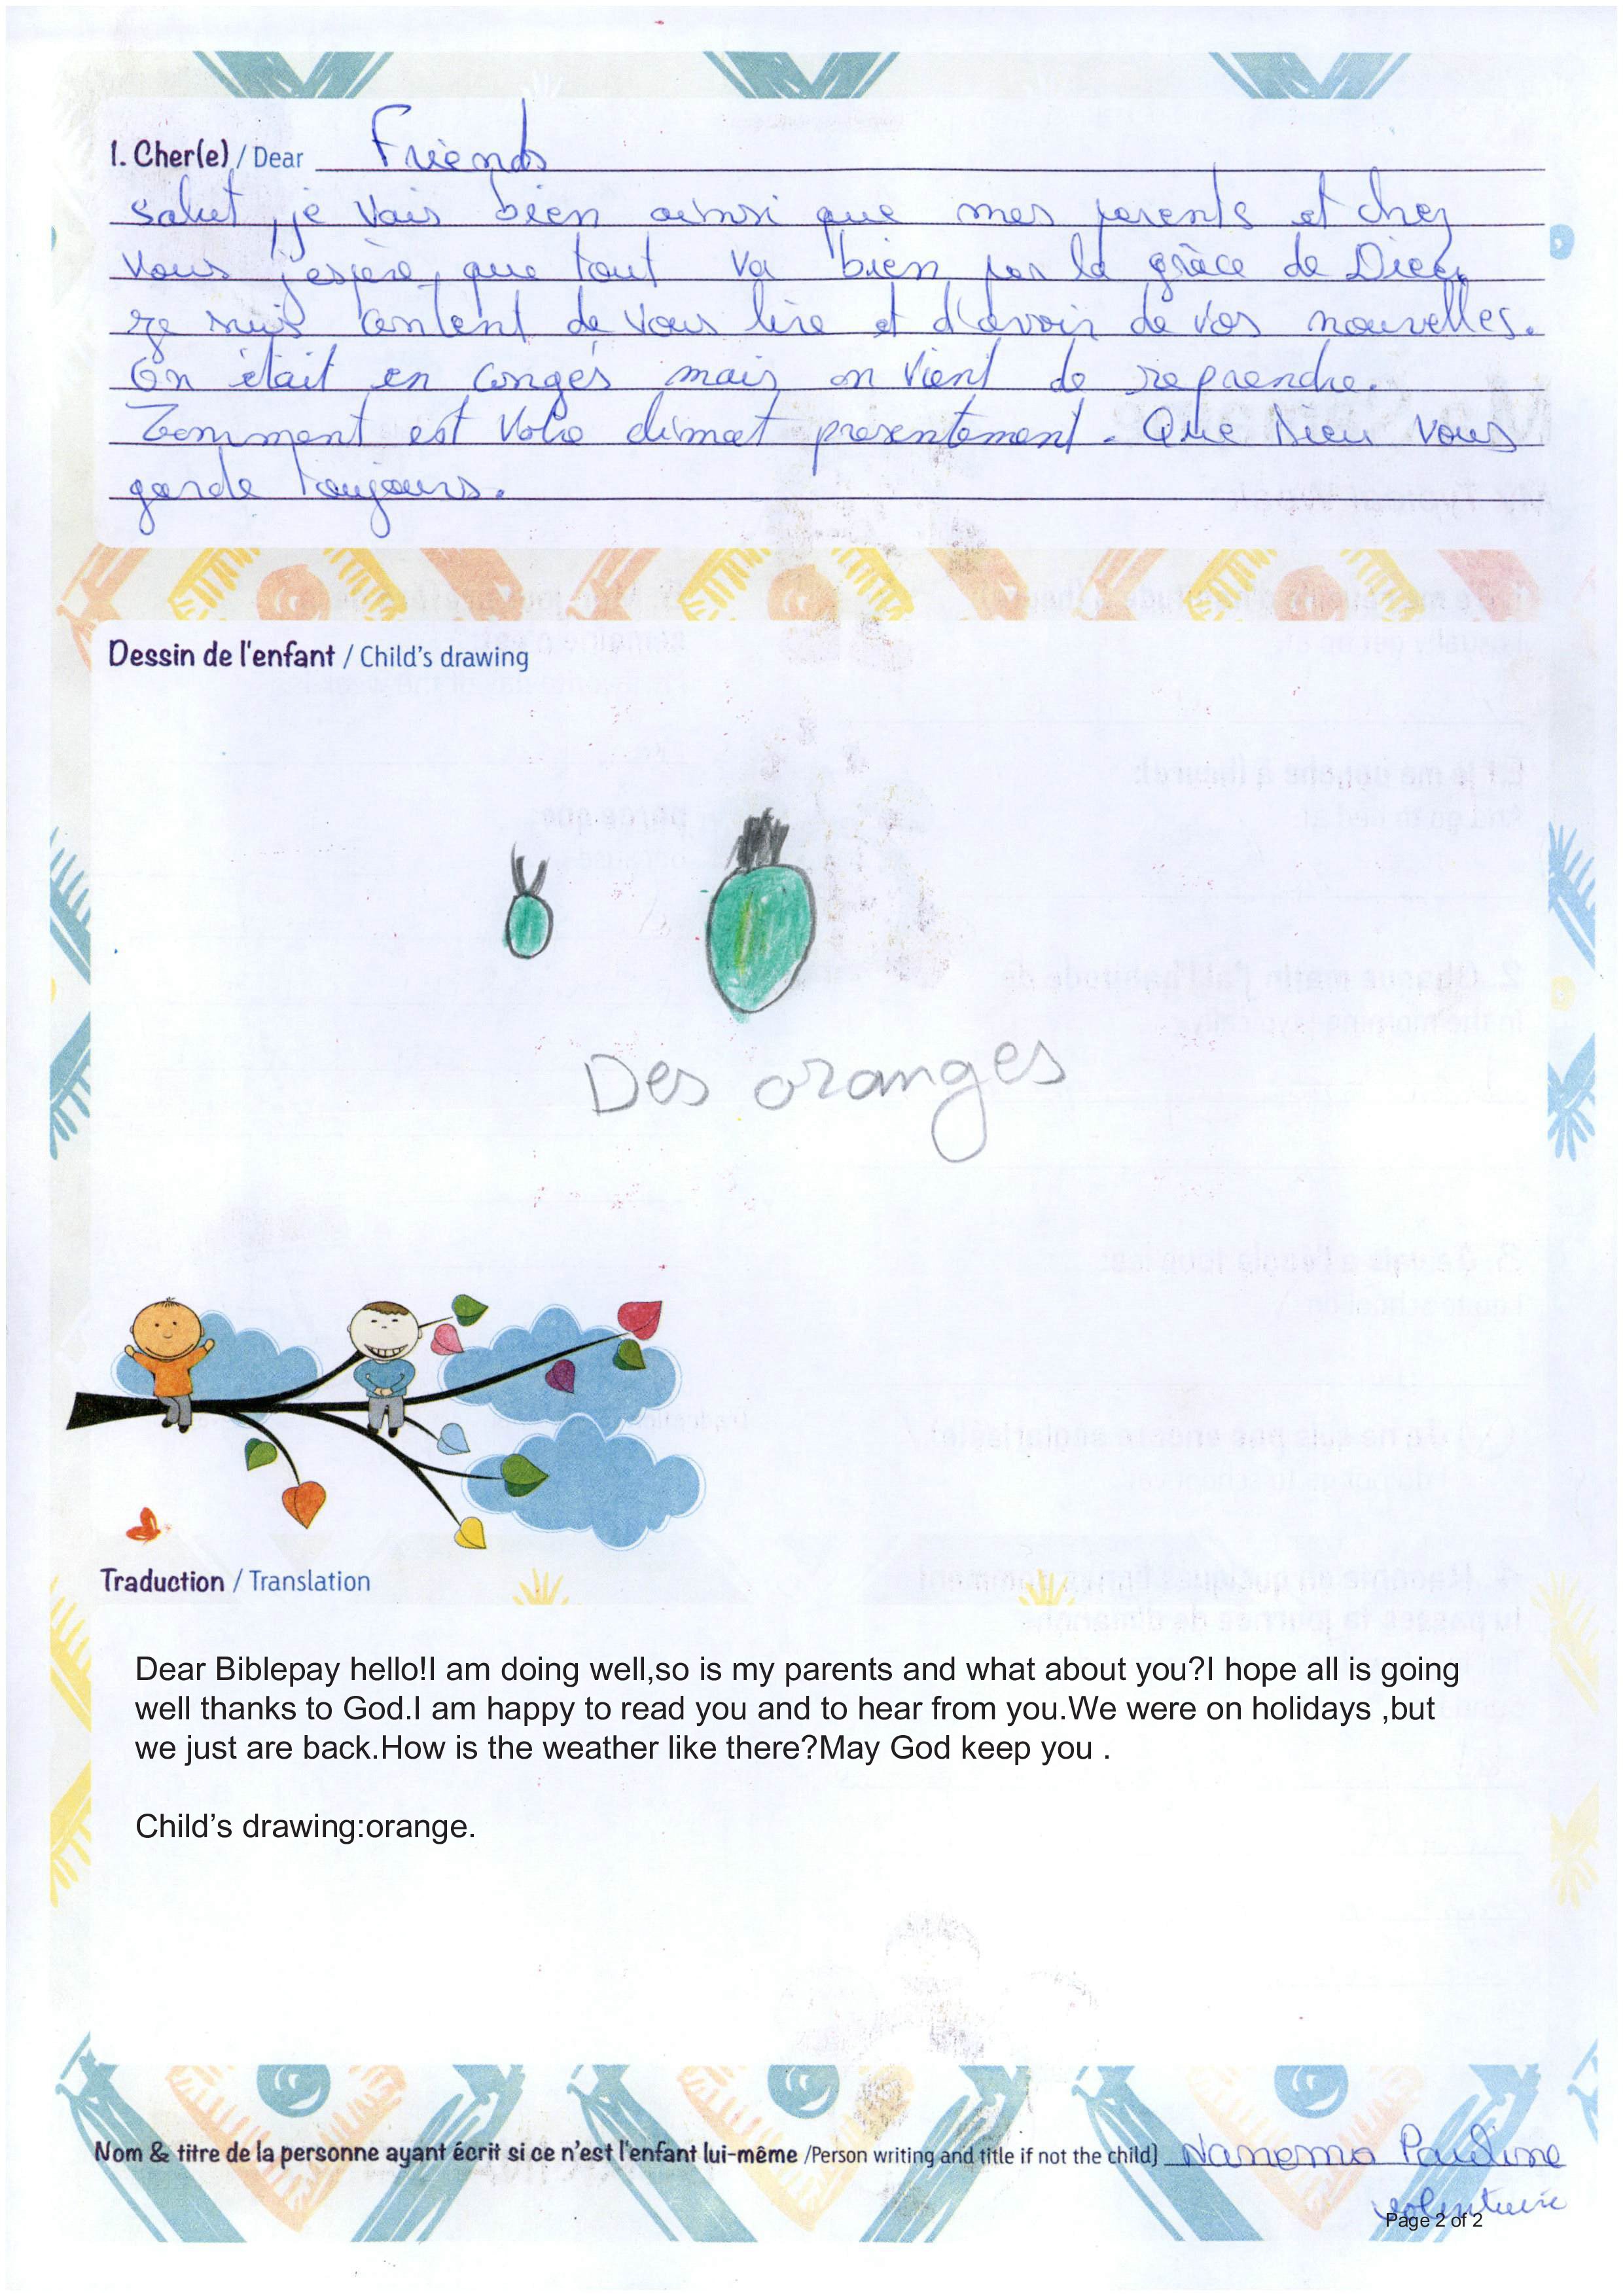 1. Cher(e) / Dear Friends
salut, je vais bien ainsi que mes parents et chez
vous j'espère que tout va bien par la grâce de Dieu,
je suis content de vous lire et d'avoir de vos nouvelles.
On était en congés mais on vient de reprendre.
Comment est votre climat presentement. Que Dieu vous
garde toujours.
Dessin de l'enfant / Child's drawing
Des oranges
Traduction / Translation
Dear Biblepay hello!I am doing well,so is my parents and what about you?I hope all is going
well thanks to God.I am happy to read you and to hear from you.We were on holidays ,but
we just are back.How is the weather like there?May God keep you .
Child’s drawing:orange.
Nom & titre de la personne ayant écrit si ce n'est l'enfant lui-même /Person writing and title if not the child) Nanema Pauline
volontaire
Page 2 of 2